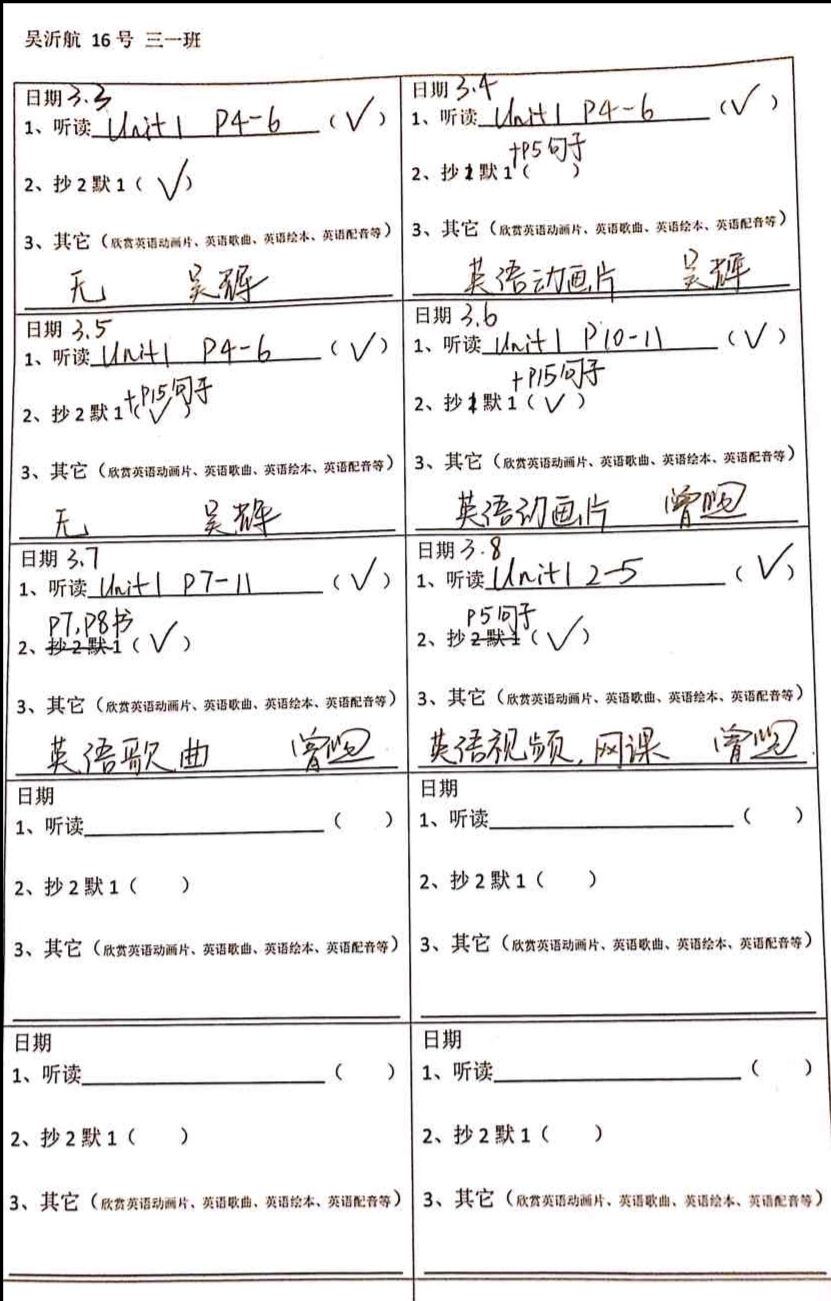 吴沂航 16号 三一班
日期 3.3
1、听读 Unit 1 P4-6 (√)
2、抄2默1 (√)
3、其它（欣赏英语动画片、英语歌曲、英语绘本、英语配音等）
无 吴辉
日期 3.4
1、听读 Unit 1 P4-6 (√)
+P5句子
2、抄1默1 ( )
3、其它（欣赏英语动画片、英语歌曲、英语绘本、英语配音等）
英语动画片 吴辉
日期 3.5
1、听读 Unit 1 P4-6 (√)
+P15句子
2、抄2默1 (√)
3、其它（欣赏英语动画片、英语歌曲、英语绘本、英语配音等）
无 吴辉
日期 3.6
1、听读 Unit 1 P10-11 (√)
+P15句子
2、抄1默1 (√)
3、其它（欣赏英语动画片、英语歌曲、英语绘本、英语配音等）
英语动画片
日期 3.7
1、听读 Unit 1 P7-11 (√)
P7,P8书
2、抄2默1 (√)
3、其它（欣赏英语动画片、英语歌曲、英语绘本、英语配音等）
英语歌曲
日期 3.8
1、听读 Unit 1 2-5 (√)
P5句子
2、抄2默1 (√)
3、其它（欣赏英语动画片、英语歌曲、英语绘本、英语配音等）
英语视频,网课
日期
1、听读 ( )
2、抄2默1 ( )
3、其它（欣赏英语动画片、英语歌曲、英语绘本、英语配音等）
日期
1、听读 ( )
2、抄2默1 ( )
3、其它（欣赏英语动画片、英语歌曲、英语绘本、英语配音等）
日期
1、听读 ( )
2、抄2默1 ( )
3、其它（欣赏英语动画片、英语歌曲、英语绘本、英语配音等）
日期
1、听读 ( )
2、抄2默1 ( )
3、其它（欣赏英语动画片、英语歌曲、英语绘本、英语配音等）